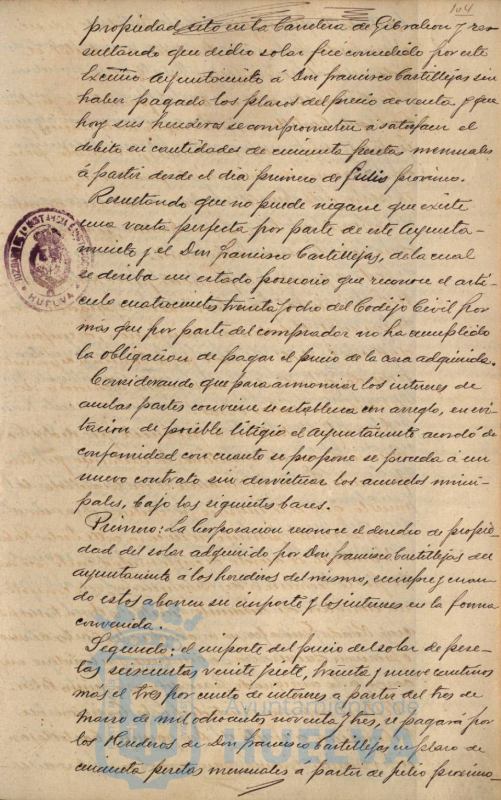 104
propiedad sito en la Carretera de Gibraleon y re-
sultando que dicho solar fué concedido por este
Excmo Ayuntamiento á Don Francisco Castillejas sin
haber pagado los plazos del precio de venta y que
hoy sus herederos se comprometen a satisfacer el
debito en cantidades de cincuenta pesetas mensuales
á partir desde el dia primero de Julio proximo.
Resultando que no puede negarse que existe
una venta perfecta por parte de este Ayunta-
miento y el Don Francisco Castillejas, de la cual
se deriba un estado posesorio que reconoce el arti-
culo cuatrocientos treinta y ocho del Codijo Civil por
más que por parte del comprador no ha cumplido
la obligacion de pagar el precio de la cosa adquirida.
Considerando que para armonizar los intereses de
ambas partes conviene se establezca un arreglo, en evi-
tacion de posible litigio el Ayuntamiento acordó de
conformidad con cuanto se propone se proceda á un
nuevo contrato sin desvirtuar los acuerdos muni-
pales, bajo las siguientes bases.
Primero: La Corporacion reconoce el derecho de propie-
dad del solar adquirido por Don Francisco Castillejas del
ayuntamiento á los herederos del mismo, siempre y cuan-
do estos abonen su importe y los intereses en la forma
convenida.
Segundo: el importe del precio del solar de pese-
tas seiscientas veinte siete, treinta y nueve centimos
más el tres por ciento de interes a partir del tres de
Marzo de mil ochocientos noventa y tres, se pagará por
los Herederos de Don Francisco Castillejas en plazo de
cincuenta pesetas mensuales á partir de Julio proximo
HUELVA
Ayuntamiento de
HUELVA